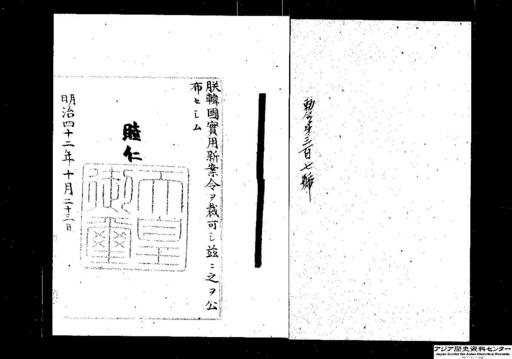 勅令第三百七號
朕韓國實用新案令ヲ裁可シ茲ニ之ヲ公
布セシム
睦仁
天皇御璽
明治四十二年十月二十三日
アジア歴史資料センター
Japan Center for Asian Historical Records